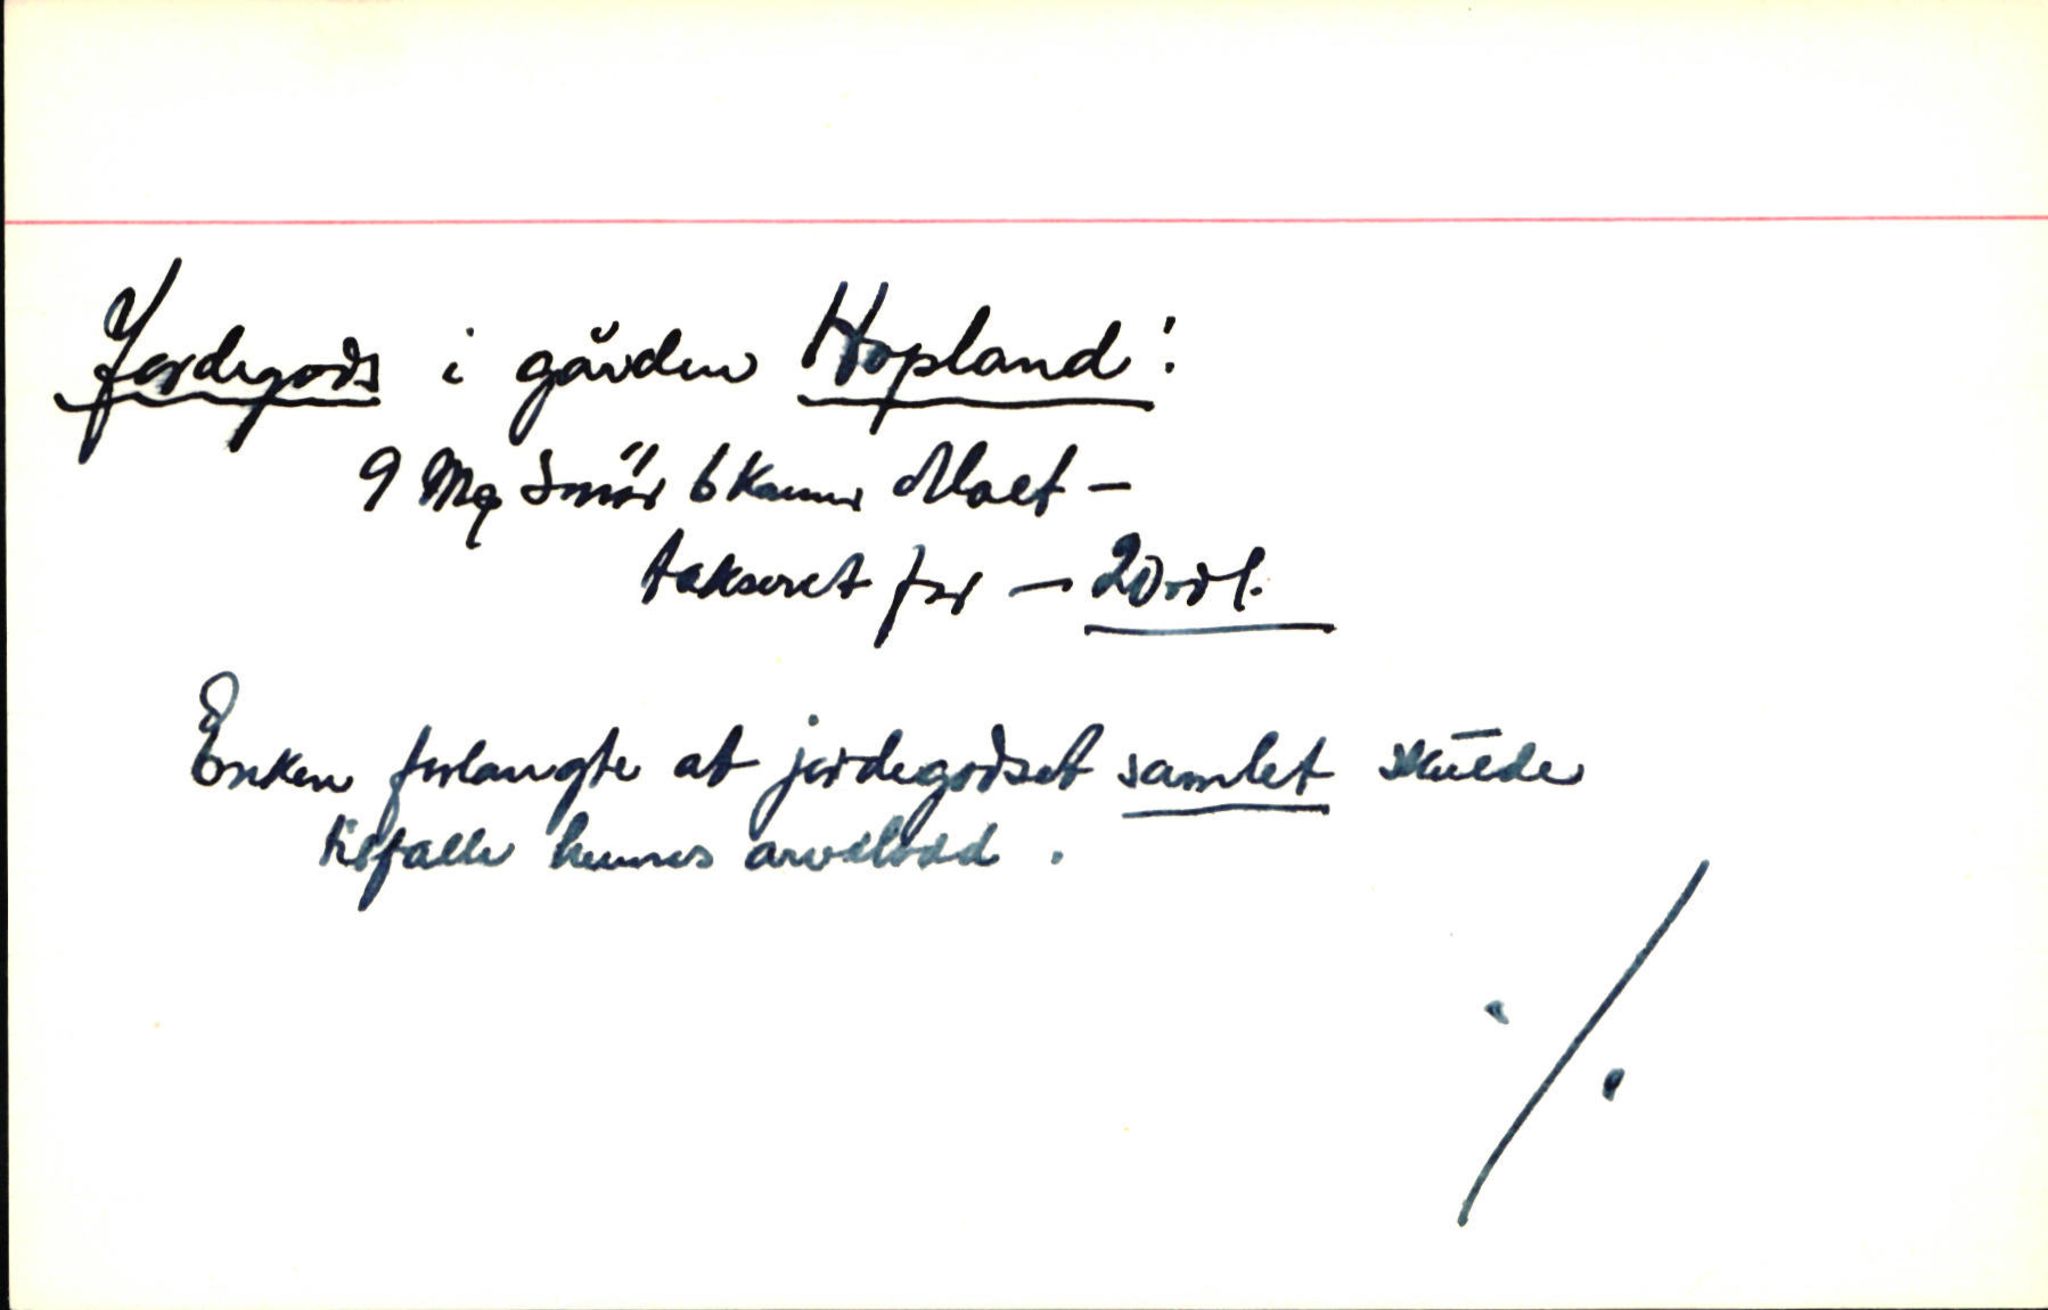 Jordegods i gården Hopland:
9 Mg Smör 6 Kanner Malt -
takseret for - 20 rdl.
Enken forlangte at jordegodset samlet skulde
tilfalle hennes arvelodd .
./.